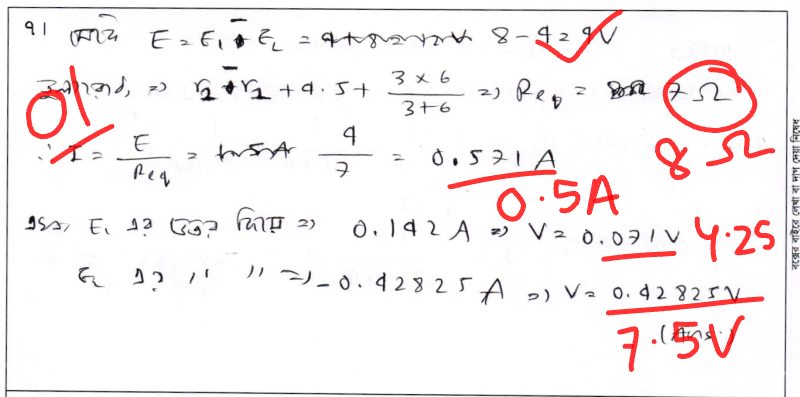 ৭। মোট E = E₁ - E₂ = 8 - 4 = 4V
তুল্যরোধ, => r₂ - r₁ + 4.5 + \frac{3 × 6}{3+6} => Req = 7Ω
01
8Ω
∴ I = \frac{E}{Req} = \frac{4}{7} = 0.571 A
0.5A
E₁ এর ভেতর দিয়ে => 0.142 A => V = 0.071V 4.25
E₂ এর " " => -0.42825 A => V = 0.42825V
7.5V
(Ans.)
বক্সের বাইরে লেখা বা দাগ দেয়া নিষেধ